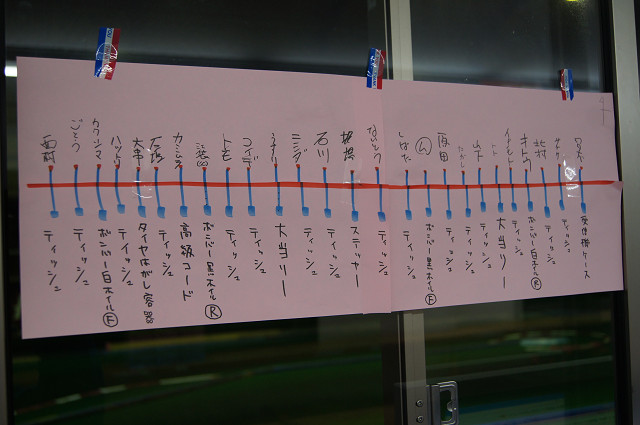 西村
ごとう
カワシマ
ハットリ
大串
カミムラ
トモ
コイデ
ニシジ
石川
ないとう
しばた
ム
原田
山下
イナモト
オトウ
北村
ティッシュ
ティッシュ
ボンバー白ホイルF
ティッシュ
タイヤはがし容器
ティッシュ
高級コード
ボンバー黒ホイルR
ティッシュ
ティッシュ
大当リー
ティッシュ
ティッシュ
ステッカー
ティッシュ
ティッシュ
ボンバー黒ホイルF
ティッシュ
ティッシュ
大当リー
ティッシュ
ボンバー白ホイルR
ティッシュ
ティッシュ
受信機ケース